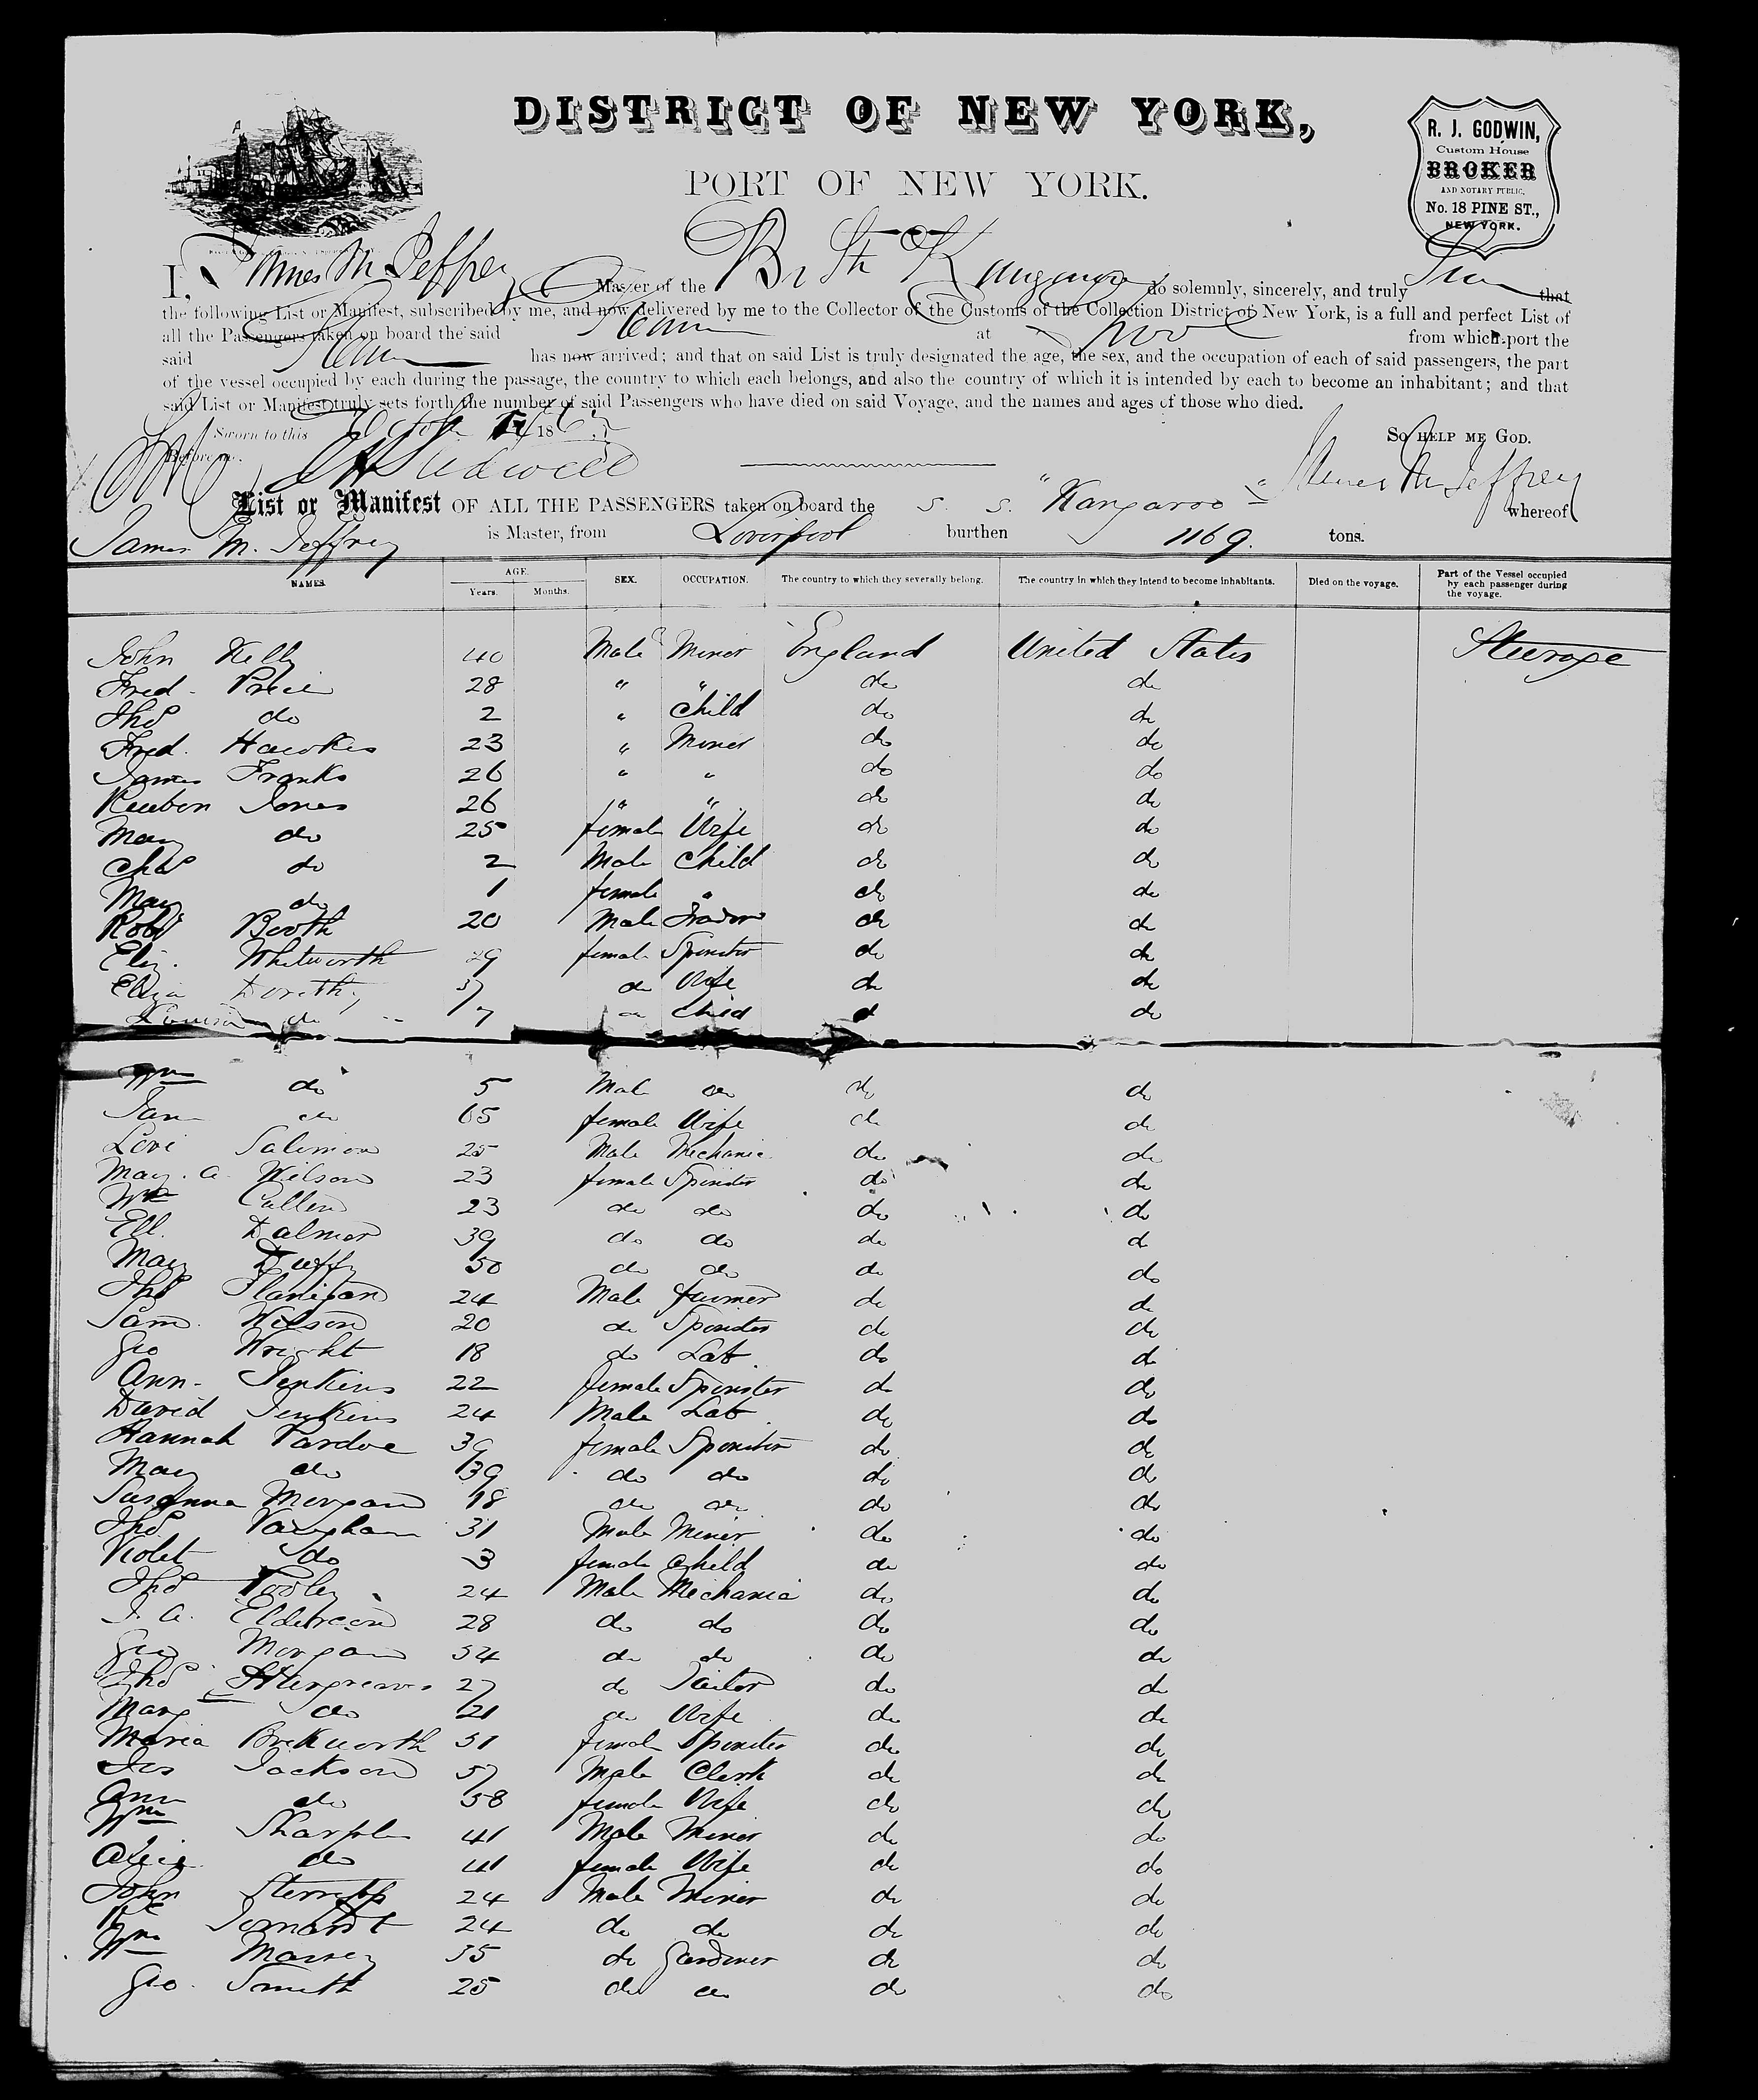 DISTRICT OF NEW YORK,
PORT OF NEW YORK.
R. J. GODWIN,
Custom House
BROKER
AND NOTARY PUBLIC,
No. 18 PINE ST.,
NEW YORK.
I, James M Jeffrey Master of the Br Str Kangaroo do solemnly, sincerely, and truly that
the following List or Manifest, subscribed by me, and now delivered by me to the Collector of the Customs of the Collection District of New York, is a full and perfect List of
all the Passengers taken on board the said at from which port the
said has now arrived; and that on said List is truly designated the age, the sex, and the occupation of each of said passengers, the part
of the vessel occupied by each during the passage, the country to which each belongs, and also the country of which it is intended by each to become an inhabitant; and that
said List or Manifest truly sets forth the number of said Passengers who have died on said Voyage, and the names and ages of those who died.
Sworn to this 186 SO HELP ME GOD.
Before me. James M Jeffrey
List or Manifest OF ALL THE PASSENGERS taken on board the S. S. "Kangaroo" whereof
James M. Jeffrey is Master, from Liverpool burthen 1169. tons.
NAMES. AGE. Years. Months. SEX. OCCUPATION. The country to which they severally belong. The country in which they intend to become inhabitants. Died on the voyage. Part of the Vessel occupied by each passenger during the voyage.
John Kelly 40 Male Miner England United States Steerage
Fred. 28 " " do do
Thos do 2 " Child do do
Fred. Hawkes 23 " Miner do do
James Franks 26 " " do do
Reuben Jones 26 " " do do
Mary do 25 female Wife do do
Chas do 2 Male Child do do
Mary do 1 female " do do
Robt Booth 20 Male do do
Eliz. Whitworth 29 female Spinster do do
Eliza do Wife do do
Louisa do 7 do Child do do
Wm do 5 Male do do do
Jane do 65 female Wife do do
Levi Salimon 25 Male Mechanic do do
Mary. A. Wilson 23 female Spinster do do
Wm Cullen 23 do do do do
Ell. Dalmer 39 do do do do
Mary Duffy 50 do do do do
Thos Flanigan 24 Male farmer do do
Sam. Wilson 20 do Spinster do do
Geo Wright 18 do Lab do do
Ann Jenkins 22 female Spinster do do
David Jenkins 24 Male Lab do do
Hannah Pardoe 39 female Spinster do do
Mary do 39 do do do do
Susanna Morgan 18 do do do do
Thos Vaughan 31 Male Miner do do
Violet do 3 female Child do do
Thos Tooley 24 Male Mechanic do do
J. A. 28 do do do do
Geo Morgan 54 do do do do
Thos Hargreaves 27 do Tailor do do
Mary do 21 do Wife do do
Maria Beckworth 31 female Spinster do do
Jas Jackson 57 Male Clerk do do
Ann do 58 female Wife do do
Wm Sharples 41 Male Miner do do
Alice do 41 female Wife do do
John 24 Male Miner do do
24 do do do do
Wm Massey 35 do Gardiner do do
Geo. Smith 25 do do do do